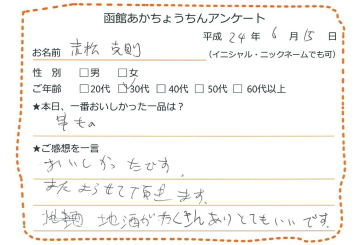 函館あかちょうちんアンケート
平成 24 年 6 月 15 日
お名前 高松 克則 (イニシャル・ニックネームでも可)
性 別 □男 □女
ご年齢 □20代 □30代 □40代 □50代 □60代以上
★本日、一番おいしかった一品は？
★ご感想を一言
おいしかったです。
またよらせて頂きます。
地酒がたくさんありとてもいいです。